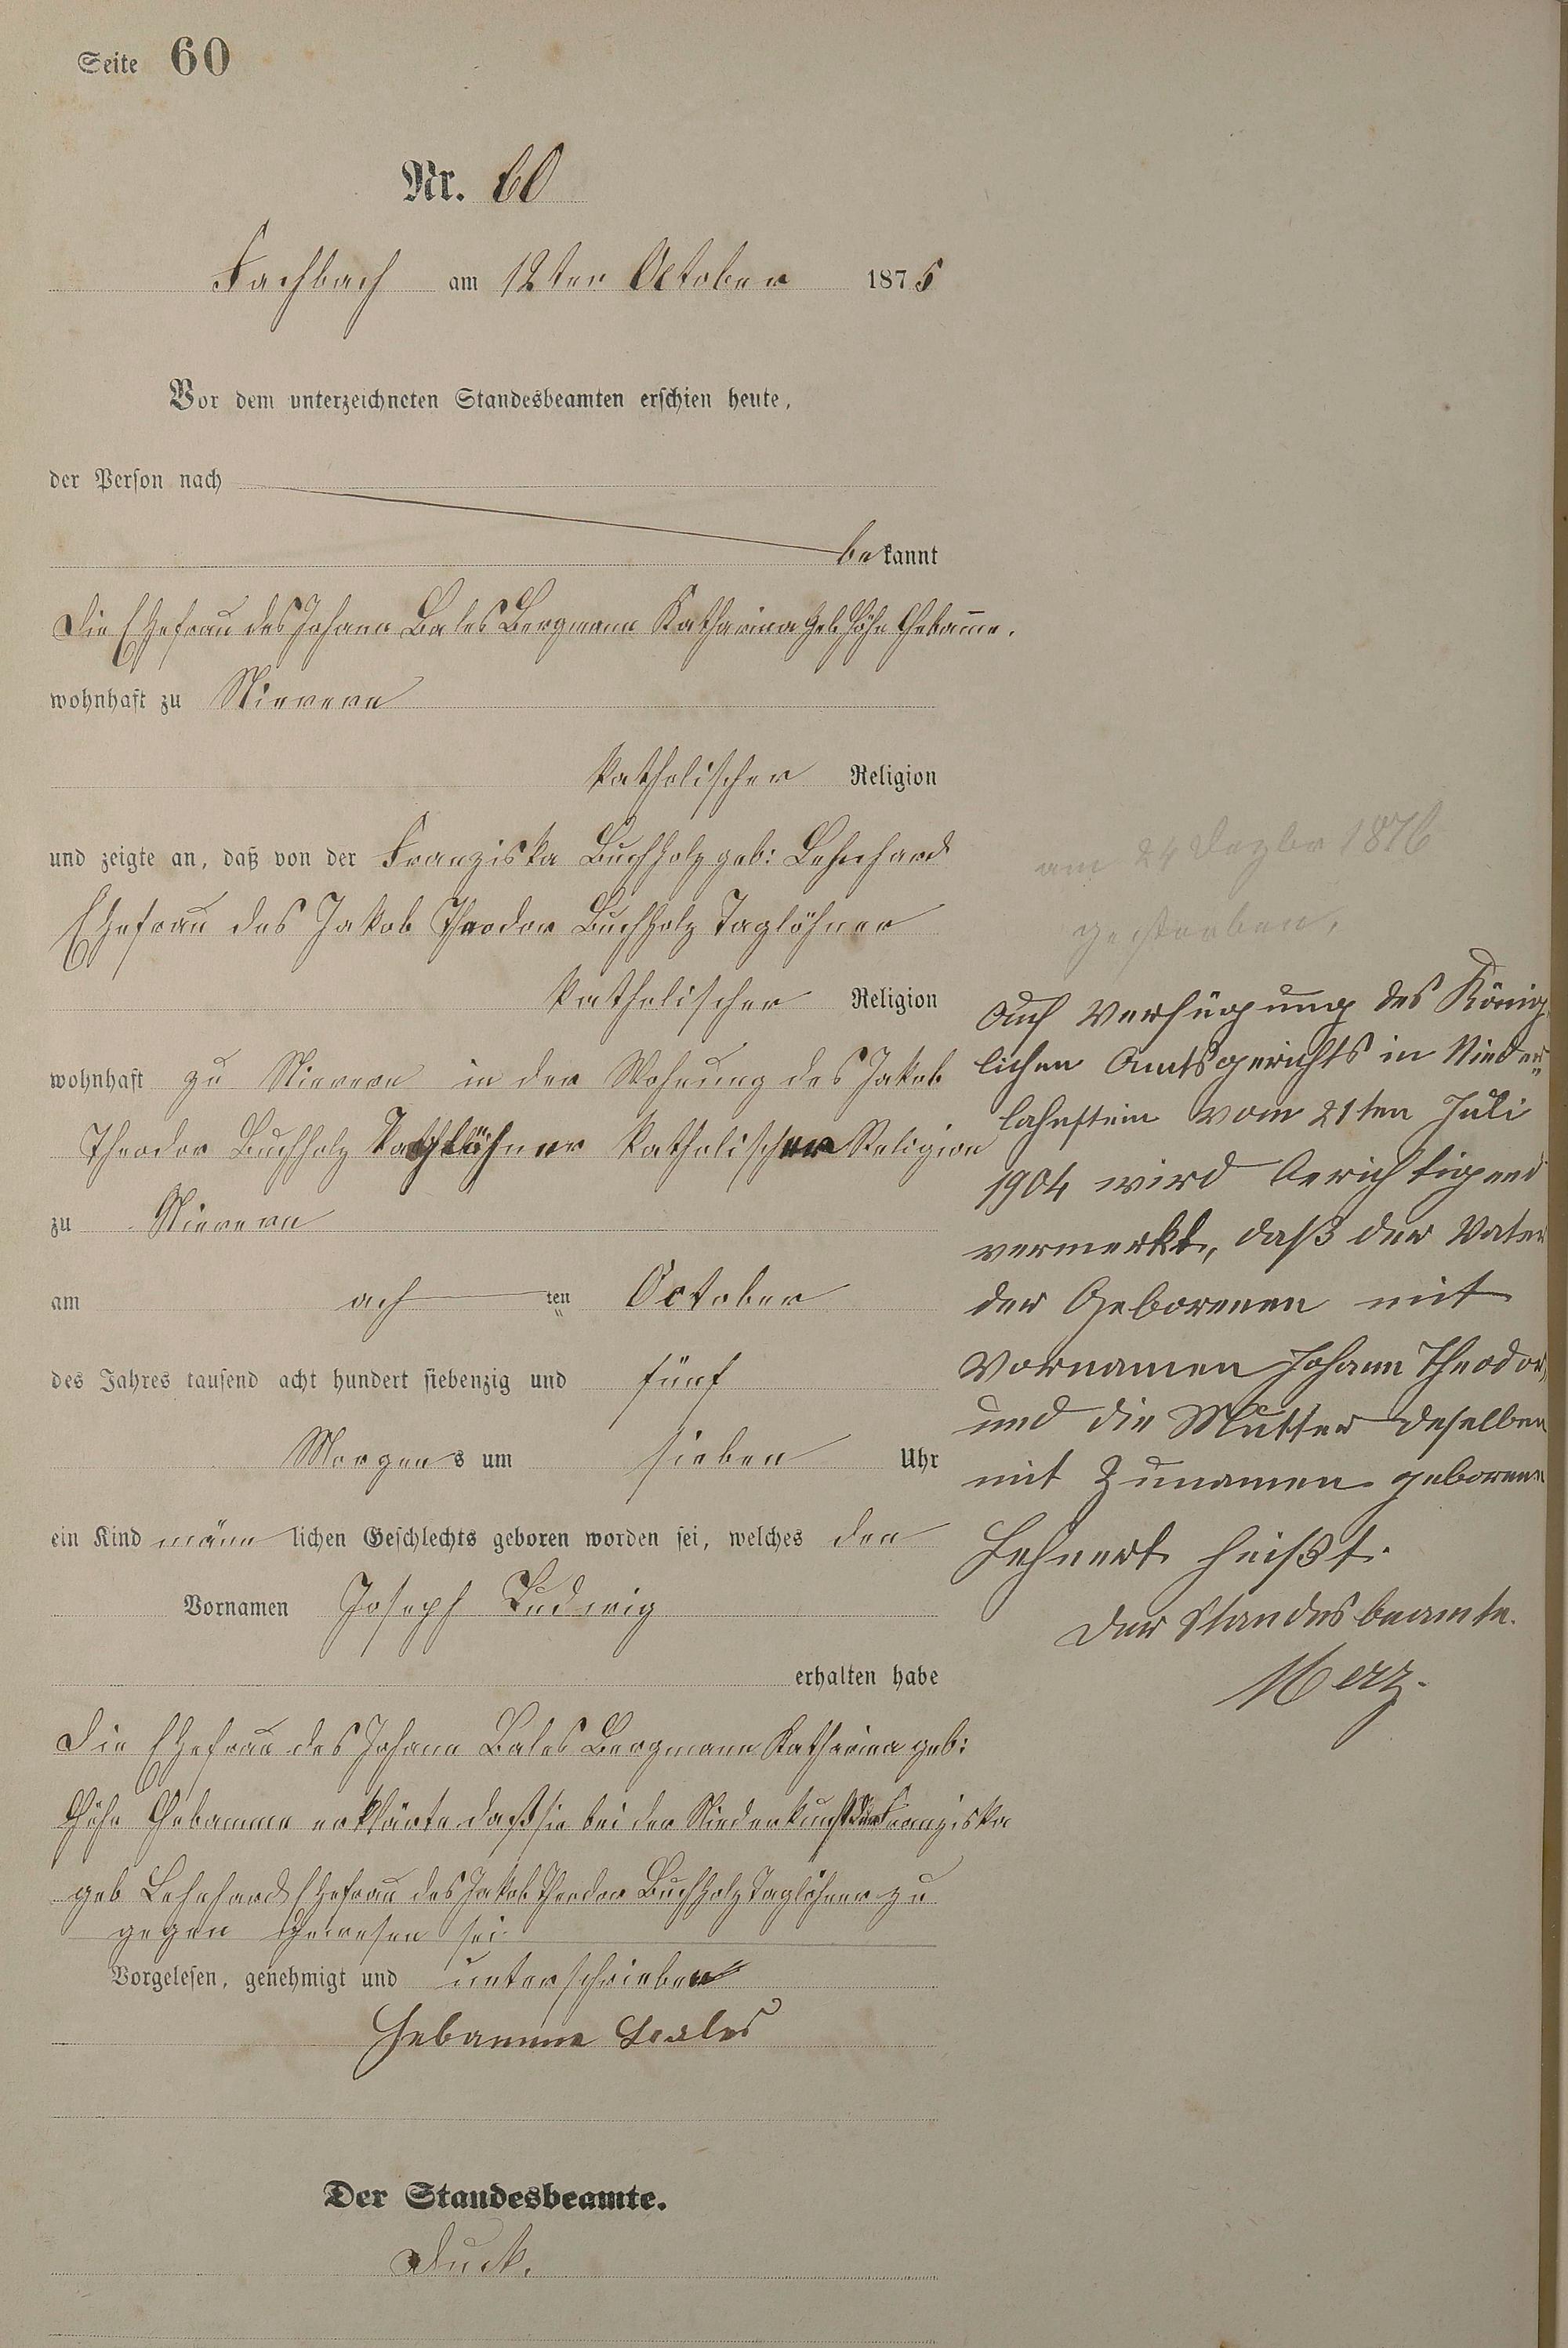 Seite 60
Nr. 60
Fachbach am 12ten October 1875
Vor dem unterzeichneten Standesbeamten erschien heute,
der Person nach
bekannt
Die Ehefrau des Johann Bales Bergmann Katharina geb. Höhn Hebamme.
wohnhaft zu Nievern
katholischer Religion
und zeigte an, daß von der Franziska Buchholz geb: Lehnhard
Ehefrau des Jakob Theodor Buchholz Taglöhner
katholischer Religion
wohnhaft zu Nievern in der Wohnung des Jakob
Theodor Buchholz Taglöhner katholischer Religion
zu Nievern
am ach ten October
des Jahres tausend acht hundert siebenzig und fünf
Morgens um sieben Uhr
ein Kind männlichen Geschlechts geboren worden sei, welches den
Vornamen Joseph Ludwig
erhalten habe
Die Ehefrau des Johann Bales Bergmann Katharina geb:
Höhn Hebamme erklärte daß sie bei der Niederkunft der Franziska
geb Lehnhard Ehefrau des Jakob Theodor Buchholz Taglöhner zu
gegen gewesen sei
Vorgelesen, genehmigt und unterschrieben
Hebamme Bales
Der Standesbeamte.
Duck.
am 24 Dezbr 1876
gestorben,
Auf Verfügung des König
lichen Amtsgerichts in Nieder„
lahnstein vom 21ten Juli
1904 wird berichtigend
vermerkt, daß der Vater
der Geborenen mit
Vornamen Johann Theodor,
und die Mutter deselben
mit Zunamen geborene
Lehnert heißt.
Der Standesbeamte.
Merz.